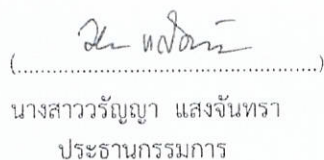 (........................................................)
นางสาววรัญญา แสงจันทรา
ประธานกรรมการ